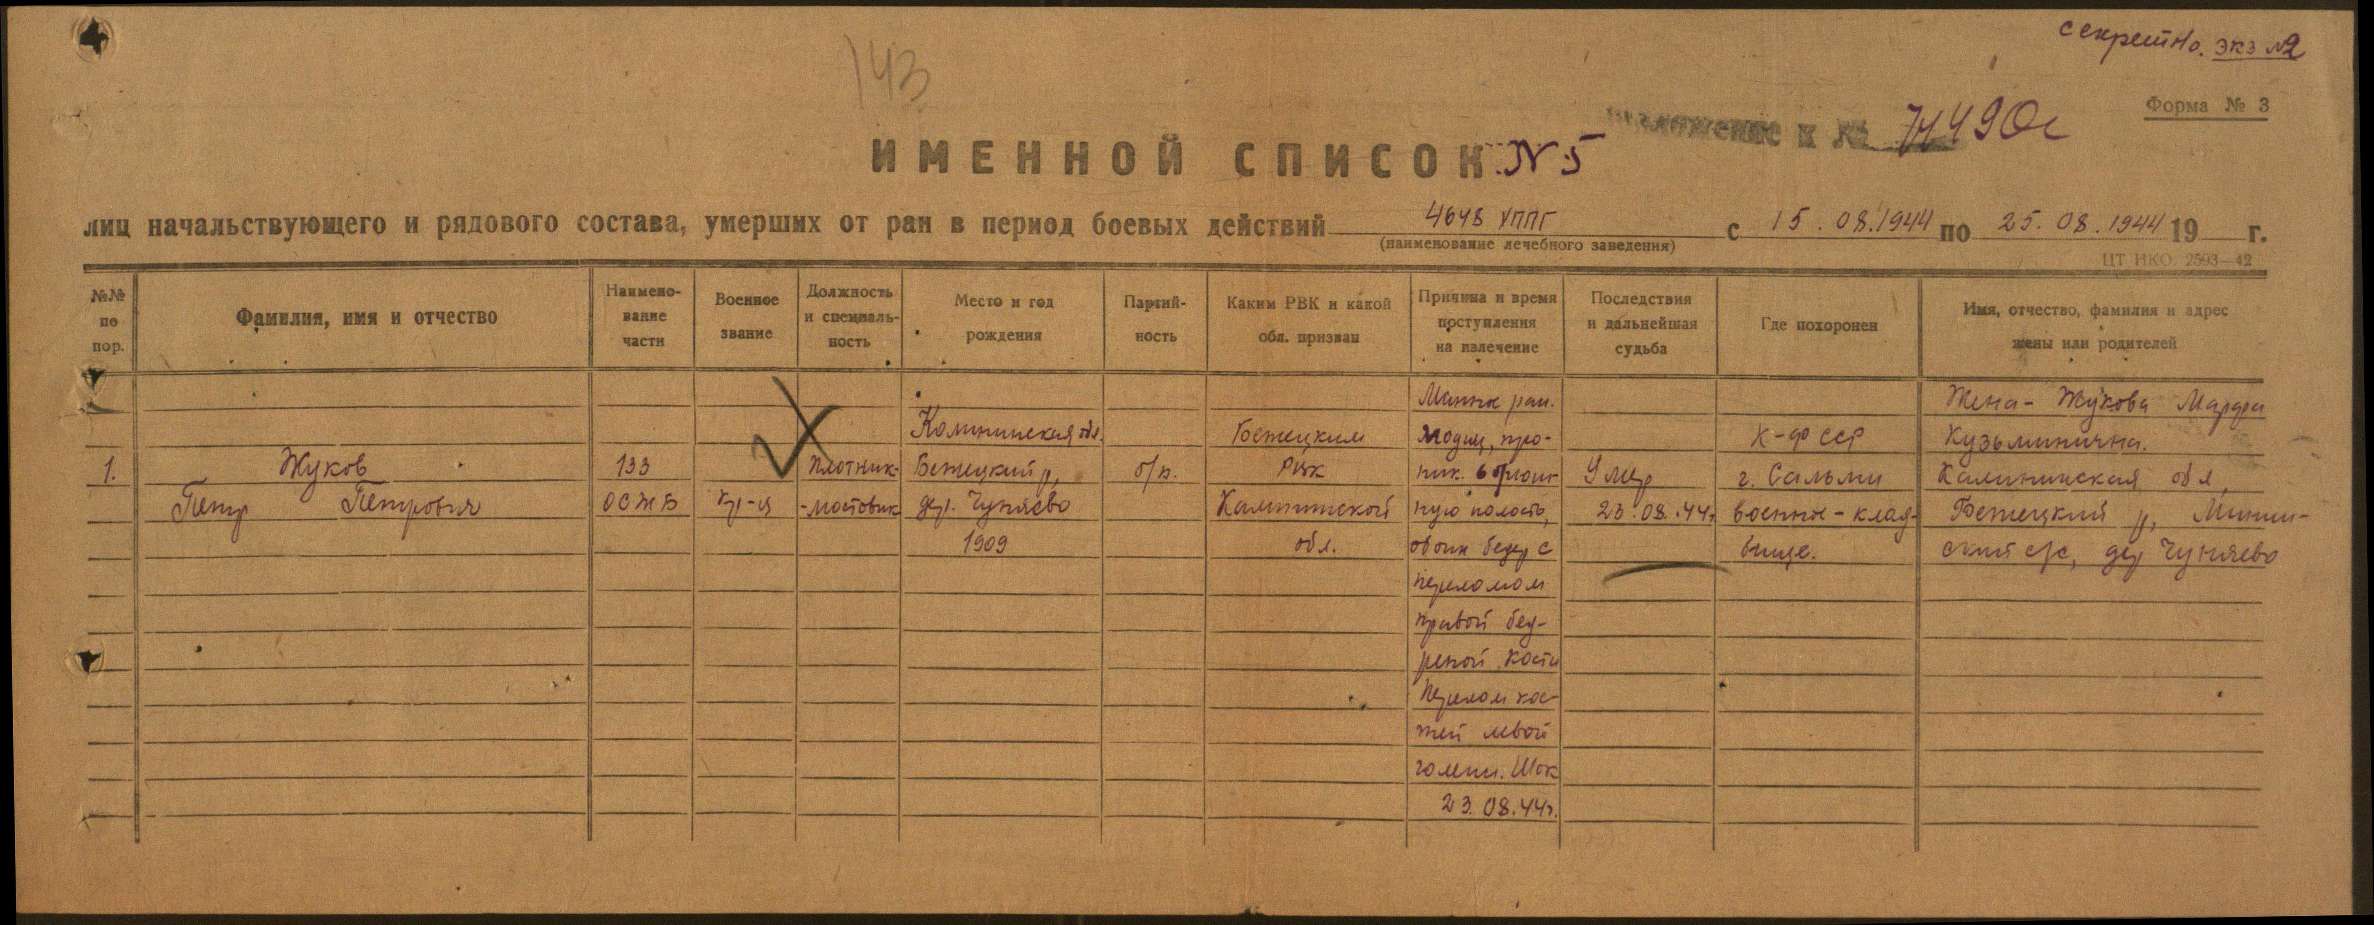 секретно. экз №2
143
Форма № 3
приложение к № 7449 0с
ИМЕННОЙ СПИСОК N 5
лиц начальствующего и рядового состава, умерших от ран в период боевых действий 4648 ХППГ с 15.08.1944 по 25.08.1944 19 г.
(наименование лечебного заведения)
ЦТ НКО 2593—42
№№ по пор.
Фамилия, имя и отчество
Наимено-
вание
части
Военное
звание
Должность
и специаль-
ность
Место и год
рождения
Партий-
ность
Каким РВК и какой
обл. призван
Причина и время
поступления
на излечение
Последствия
и дальнейшая
судьба
Где похоронен
Имя, отчество, фамилия и адрес
жены или родителей
1.
Жуков
Петр Петрович
133
ОСМБ
кр-ц
плотник-
-мостовик
Калининская обл.
Бежецкий р,
дер. Чуняево
1909
б/п.
Бежецким
РВК
Калининской
обл.
Минное ран.
ягодиц, про-
ник. в брюш-
ную полость,
обоих бедер с
переломом
правой бед-
реной кости
Перелом кос-
тей левой
голени. Шок
23.08.44г.
Умер
23.08.44г.
К-ф ССР
г. Сальми
военное-клад-
бище.
Жена - Жукова Марфа
Кузьминична.
Калининская обл,
Бежецкий р,
ский с/с, дер Чуняево